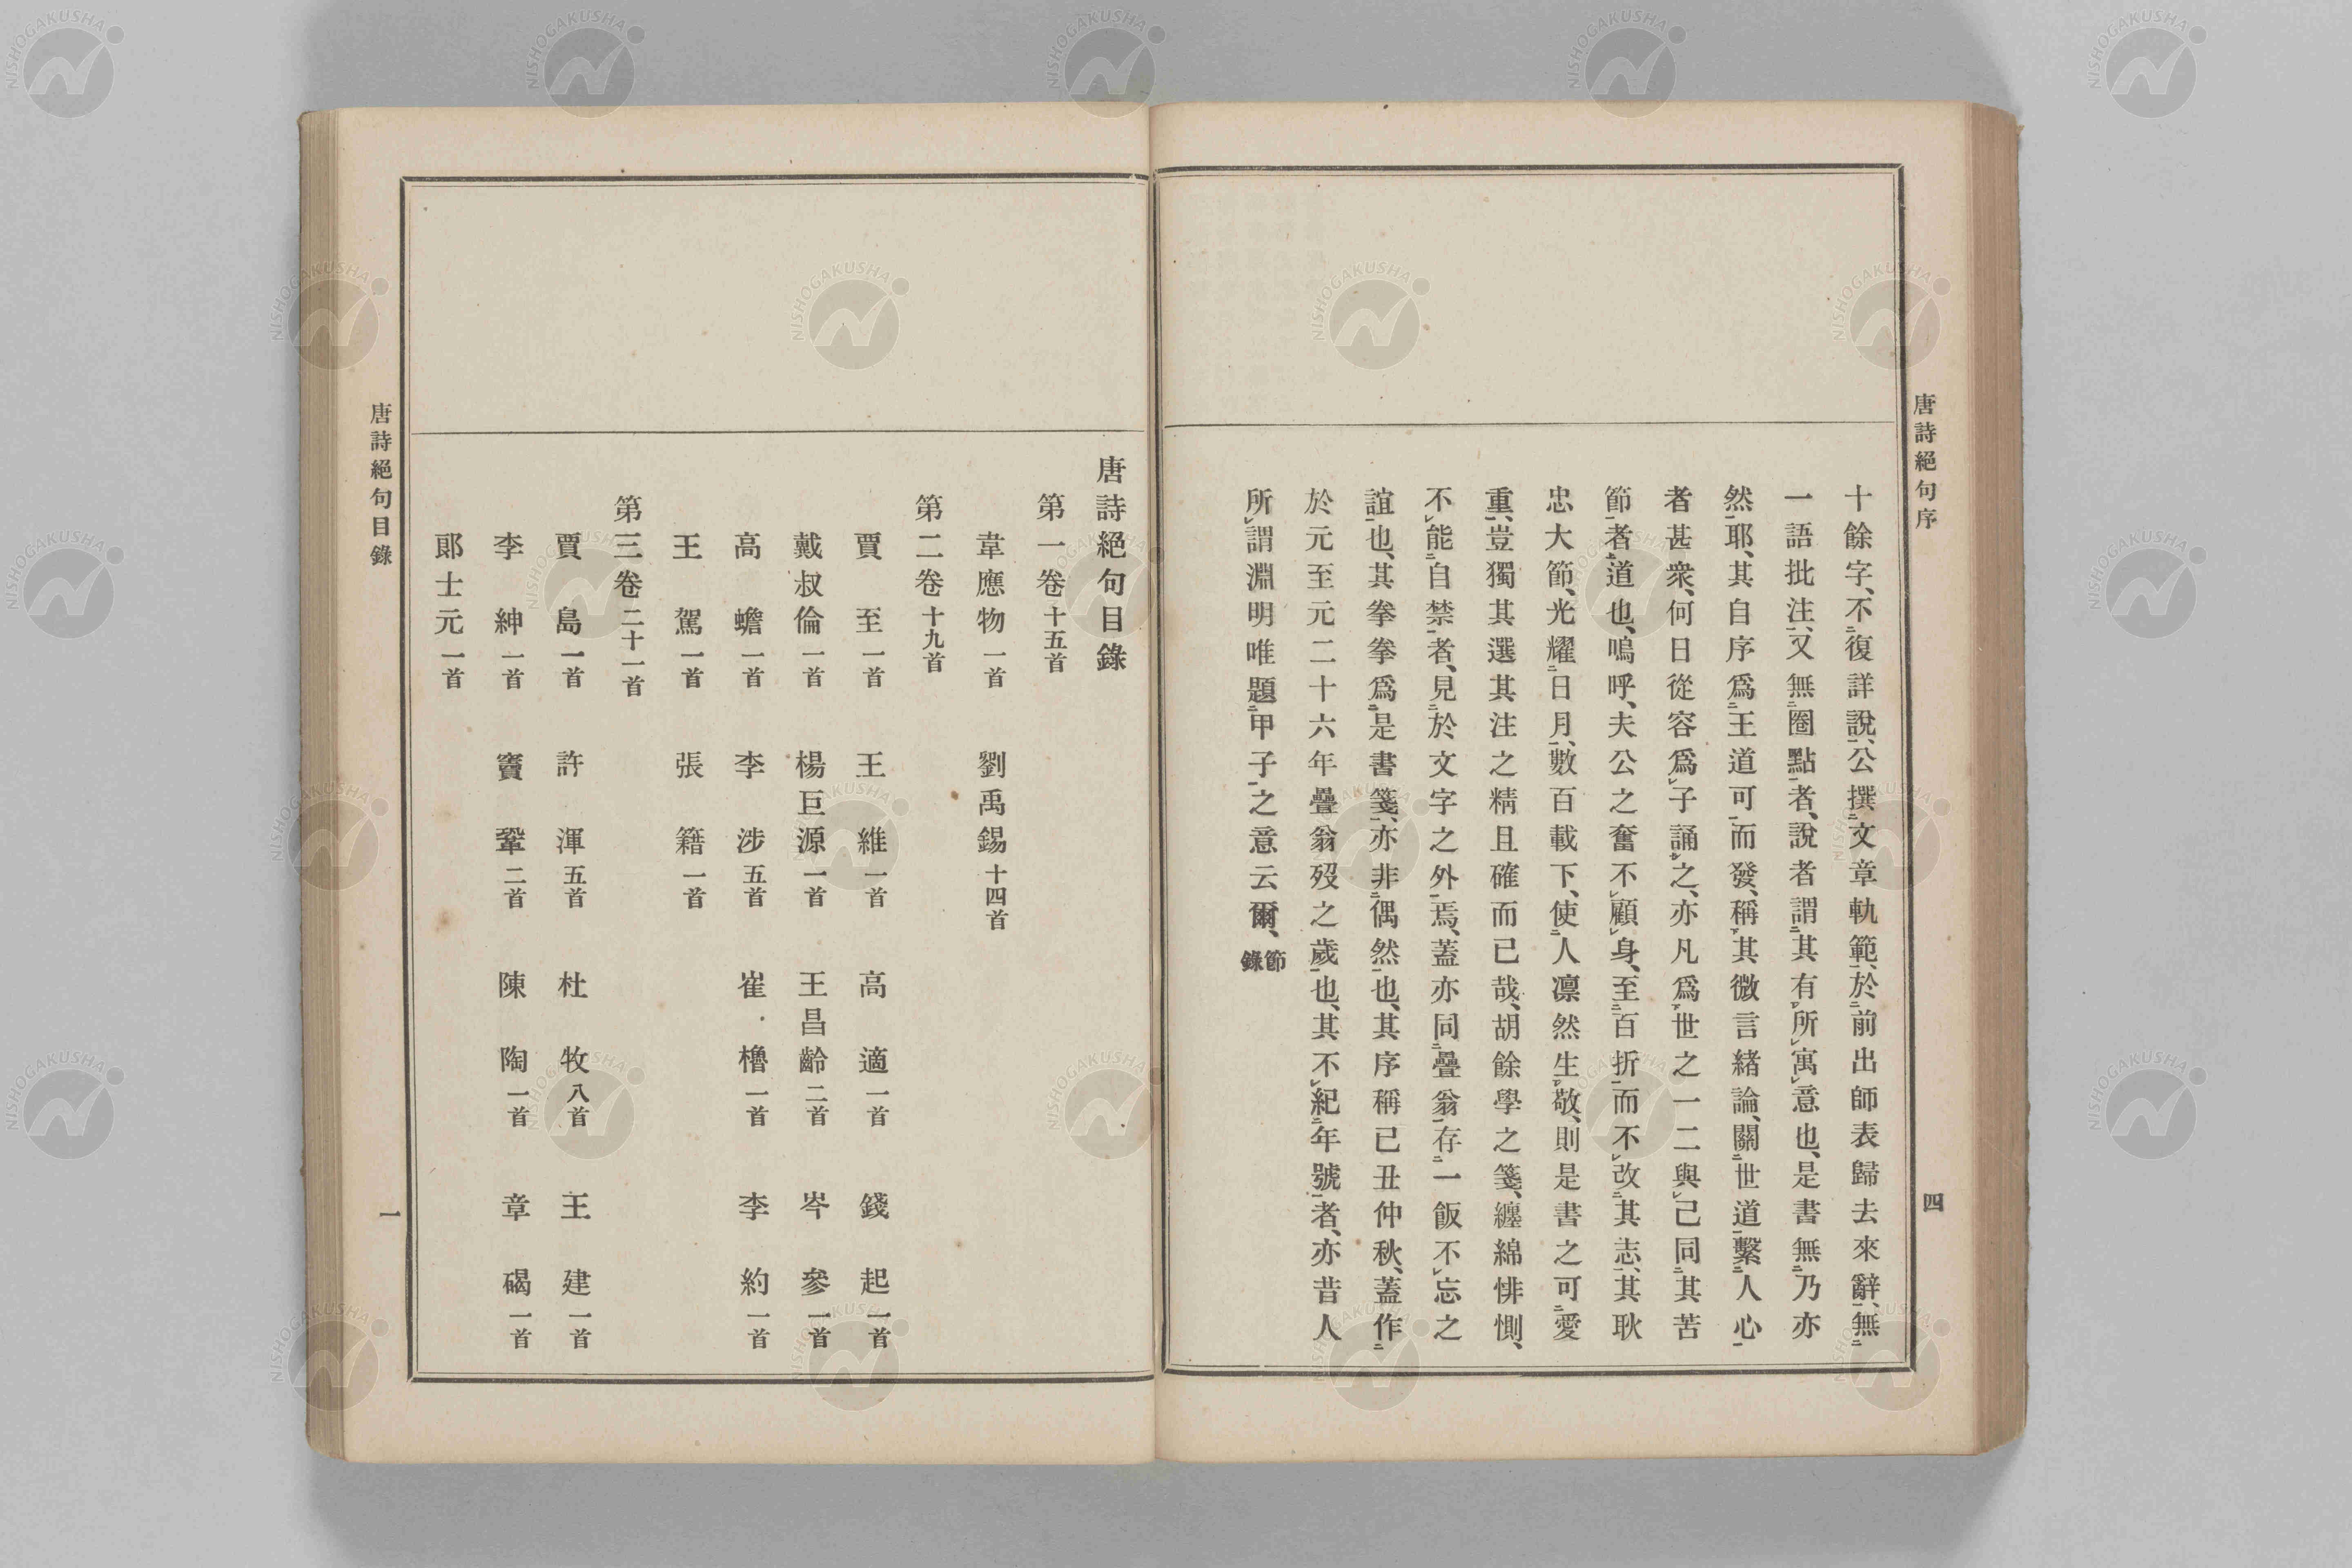 唐詩絕句序
四
十餘字、不復詳說、公撰文章軌範、於前出師表歸去來辭、無
一語批注、又無圈點者、說者謂其有所寓意也、是書無乃亦
然耶、其自序爲王道可而發、稱其微言緒論、關世道繫人心
者甚衆、何日從容爲子誦之、亦凡爲世之一二與己同其苦
節者道也、嗚呼、夫公之奮不顧身、至百折而不改其志、其耿
忠大節、光耀日月、數百載下、使人凛然生敬、則是書之可愛
重、豈獨其選其注之精且確而已哉、胡餘學之箋、纏綿悱惻、
不能自禁者、見於文字之外焉、蓋亦同疊翁存一飯不忘之
誼也、其拳拳爲是書箋、亦非偶然也、其序稱已丑仲秋、蓋作
於元至元二十六年疊翁歿之歲也、其不紀年號者、亦昔人
所謂淵明唯題甲子之意云爾、節錄
唐詩絕句目錄
第一卷十五首
韋應物一首 劉禹錫十四首
第二卷十九首
賈至一首 王維一首 高適一首 錢起一首
戴叔倫一首 楊巨源一首 王昌齡二首 岑參一首
高蟾一首 李涉五首 崔櫓一首 李約一首
王駕一首 張籍一首
第三卷二十一首
賈島一首 許渾五首 杜牧八首 王建一首
李紳一首 竇鞏二首 陳陶一首 章碣一首
郞士元一首
唐詩絕句目錄
一
NISHOGAKUSHA